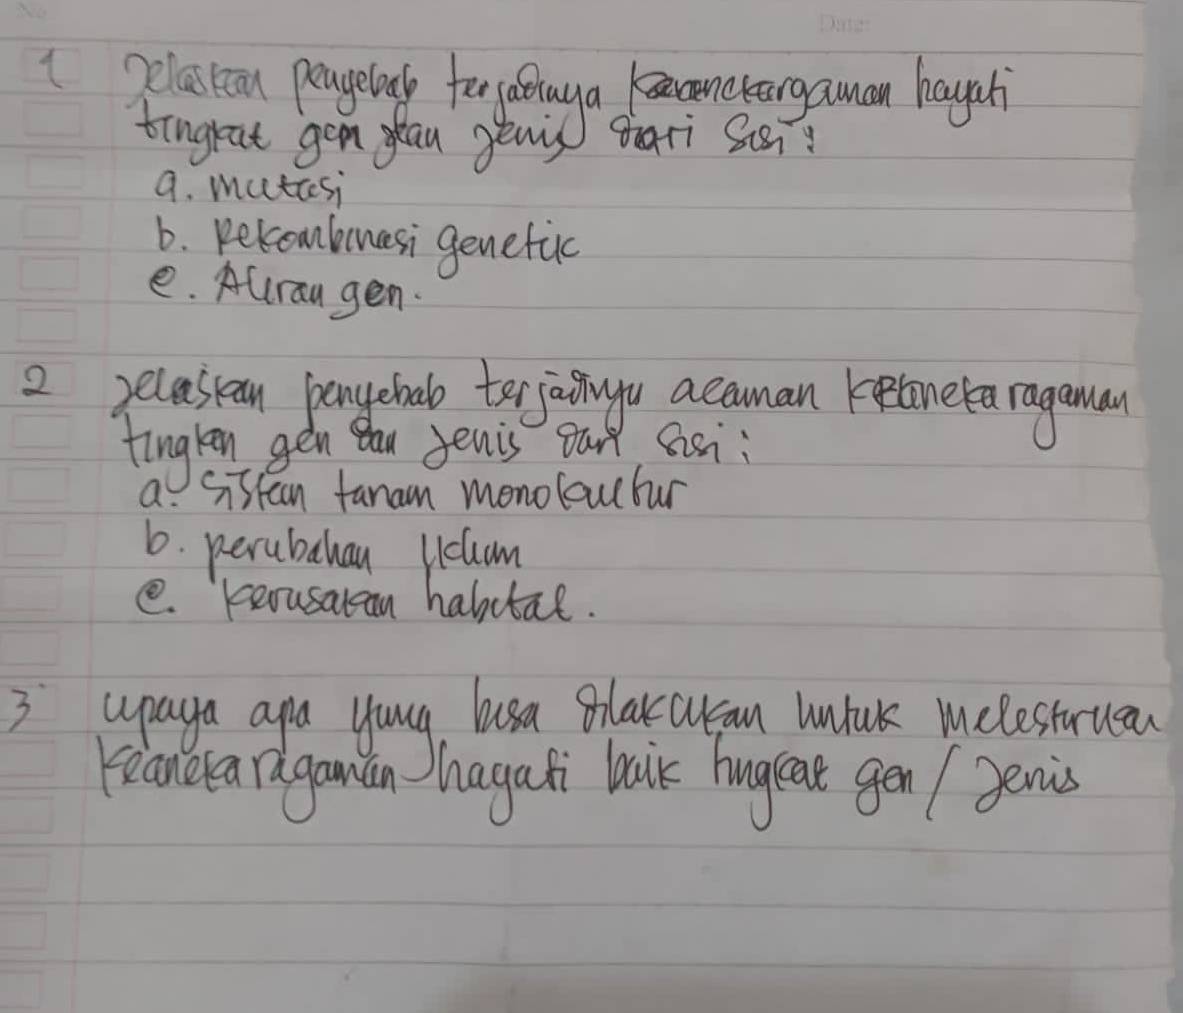 No
Date:
1 Jelaskan penyebab terjadinya keanekargaman hayati
tingkat gen atau jenis dari sisi:
a. mutasi
b. Rekombinasi genetik
c. Aliran gen.
2 Jelaskan penyebab terjadinya acaman keanekaragaman
tingkan gen dan jenis dari sisi:
a. Sistem tanam monokultur
b. perubahan iklim
c. kerusakan habitat.
3 upaya apa yang bisa dilakukan untuk melestarikan
keanekaragaman hayati baik tingkat gen / Jenis